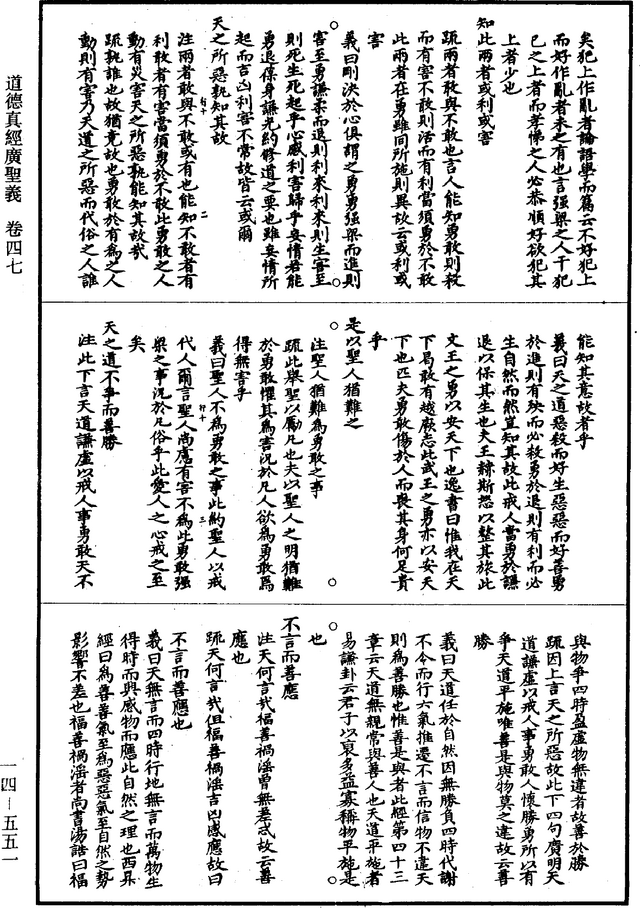 道德真經廣聖義 卷四七
矣犯上作亂者論語學而篇云不好犯上
而好作亂者未之有也言強梁之人干犯
已之上者而孝悌之人必恭順好欲犯其
上者少也
知此兩者或利或害
疏兩者敢與不敢也言人能知勇敢則殺
而有害不敢則活而有利當須勇於不敢
此兩者在勇雖間所施則異故云或利或
害
義曰剛決於心俱謂之勇勇強梁而進則
害至勇謙柔而退則利來利來則生害至
則死生死起乎心感利害歸乎妄情君能
勇退保身謙光約修道之要也雖妄情所
起而吉凶利害不常故皆云或爾
天之所惡孰知其故
注兩者敢與不敢或有也能知不敢者有
利敢者有害當須勇於不敢此勇敢之人
動有災害天之所惡孰能知其故哉
疏孰誰也故猶意故也勇敢於有為之人
動則有害乃天道之所惡而代俗之人誰
能知其意故者乎
義曰天之道惡殺而好生惡惡而好善勇
於進則有殃而必殺勇於退則有利而必
生自然而然豈知其故此戒人當勇於謙
退以保其生也夫王赫斯怒以整其旅此
文王之勇以安天下也逸書曰惟我在天
下曷敢有越厥志此武王之勇亦以安天
下也匹夫勇敢傷於人而喪其身何足貴
乎
是以聖人猶難之
注聖人猶難為勇敢之事
疏此舉聖以勵凡也夫以聖人之明猶難
於勇敢懼其為害況於凡人欲為勇敢焉
得無害乎
義曰聖人不為勇敢之事此約聖人以戒
代人爾言聖人尚慮有害不為此勇敢強
梁之事況於凡俗乎此愛人之心戒之至
矣
天之道不爭而善勝
注此下言天道謙虛以戒人事勇敢天不
與物爭四時盈虛物無違者故善於勝
疏因上言天之所惡故此下四句廣明天
道謙虛以戒人事勇敢人懷勝勇所以有
爭天道平施唯善是與物莫之違故云善
勝
義曰天道任於自然因無勝負四時代謝
不令而行六氣推遷不言而信物不違天
則為善勝也惟善是與者此經第四十三
章云天道無親常與善人也天道平施者
易謙卦云君子以裒多益寡稱物平施是
也
不言而善應
注天何言哉福善禍淫曾無差忒故云善
應也
疏天何言哉但福善禍淫吉凶感應故曰
不言而善應也
義曰天無言而四時行地無言而萬物生
得時而與感物而應此自然之理也西昇
經曰為善善氣至為惡惡氣至自然之勢
影響不差也福善禍淫者尚書湯誥曰福
一四—五五一